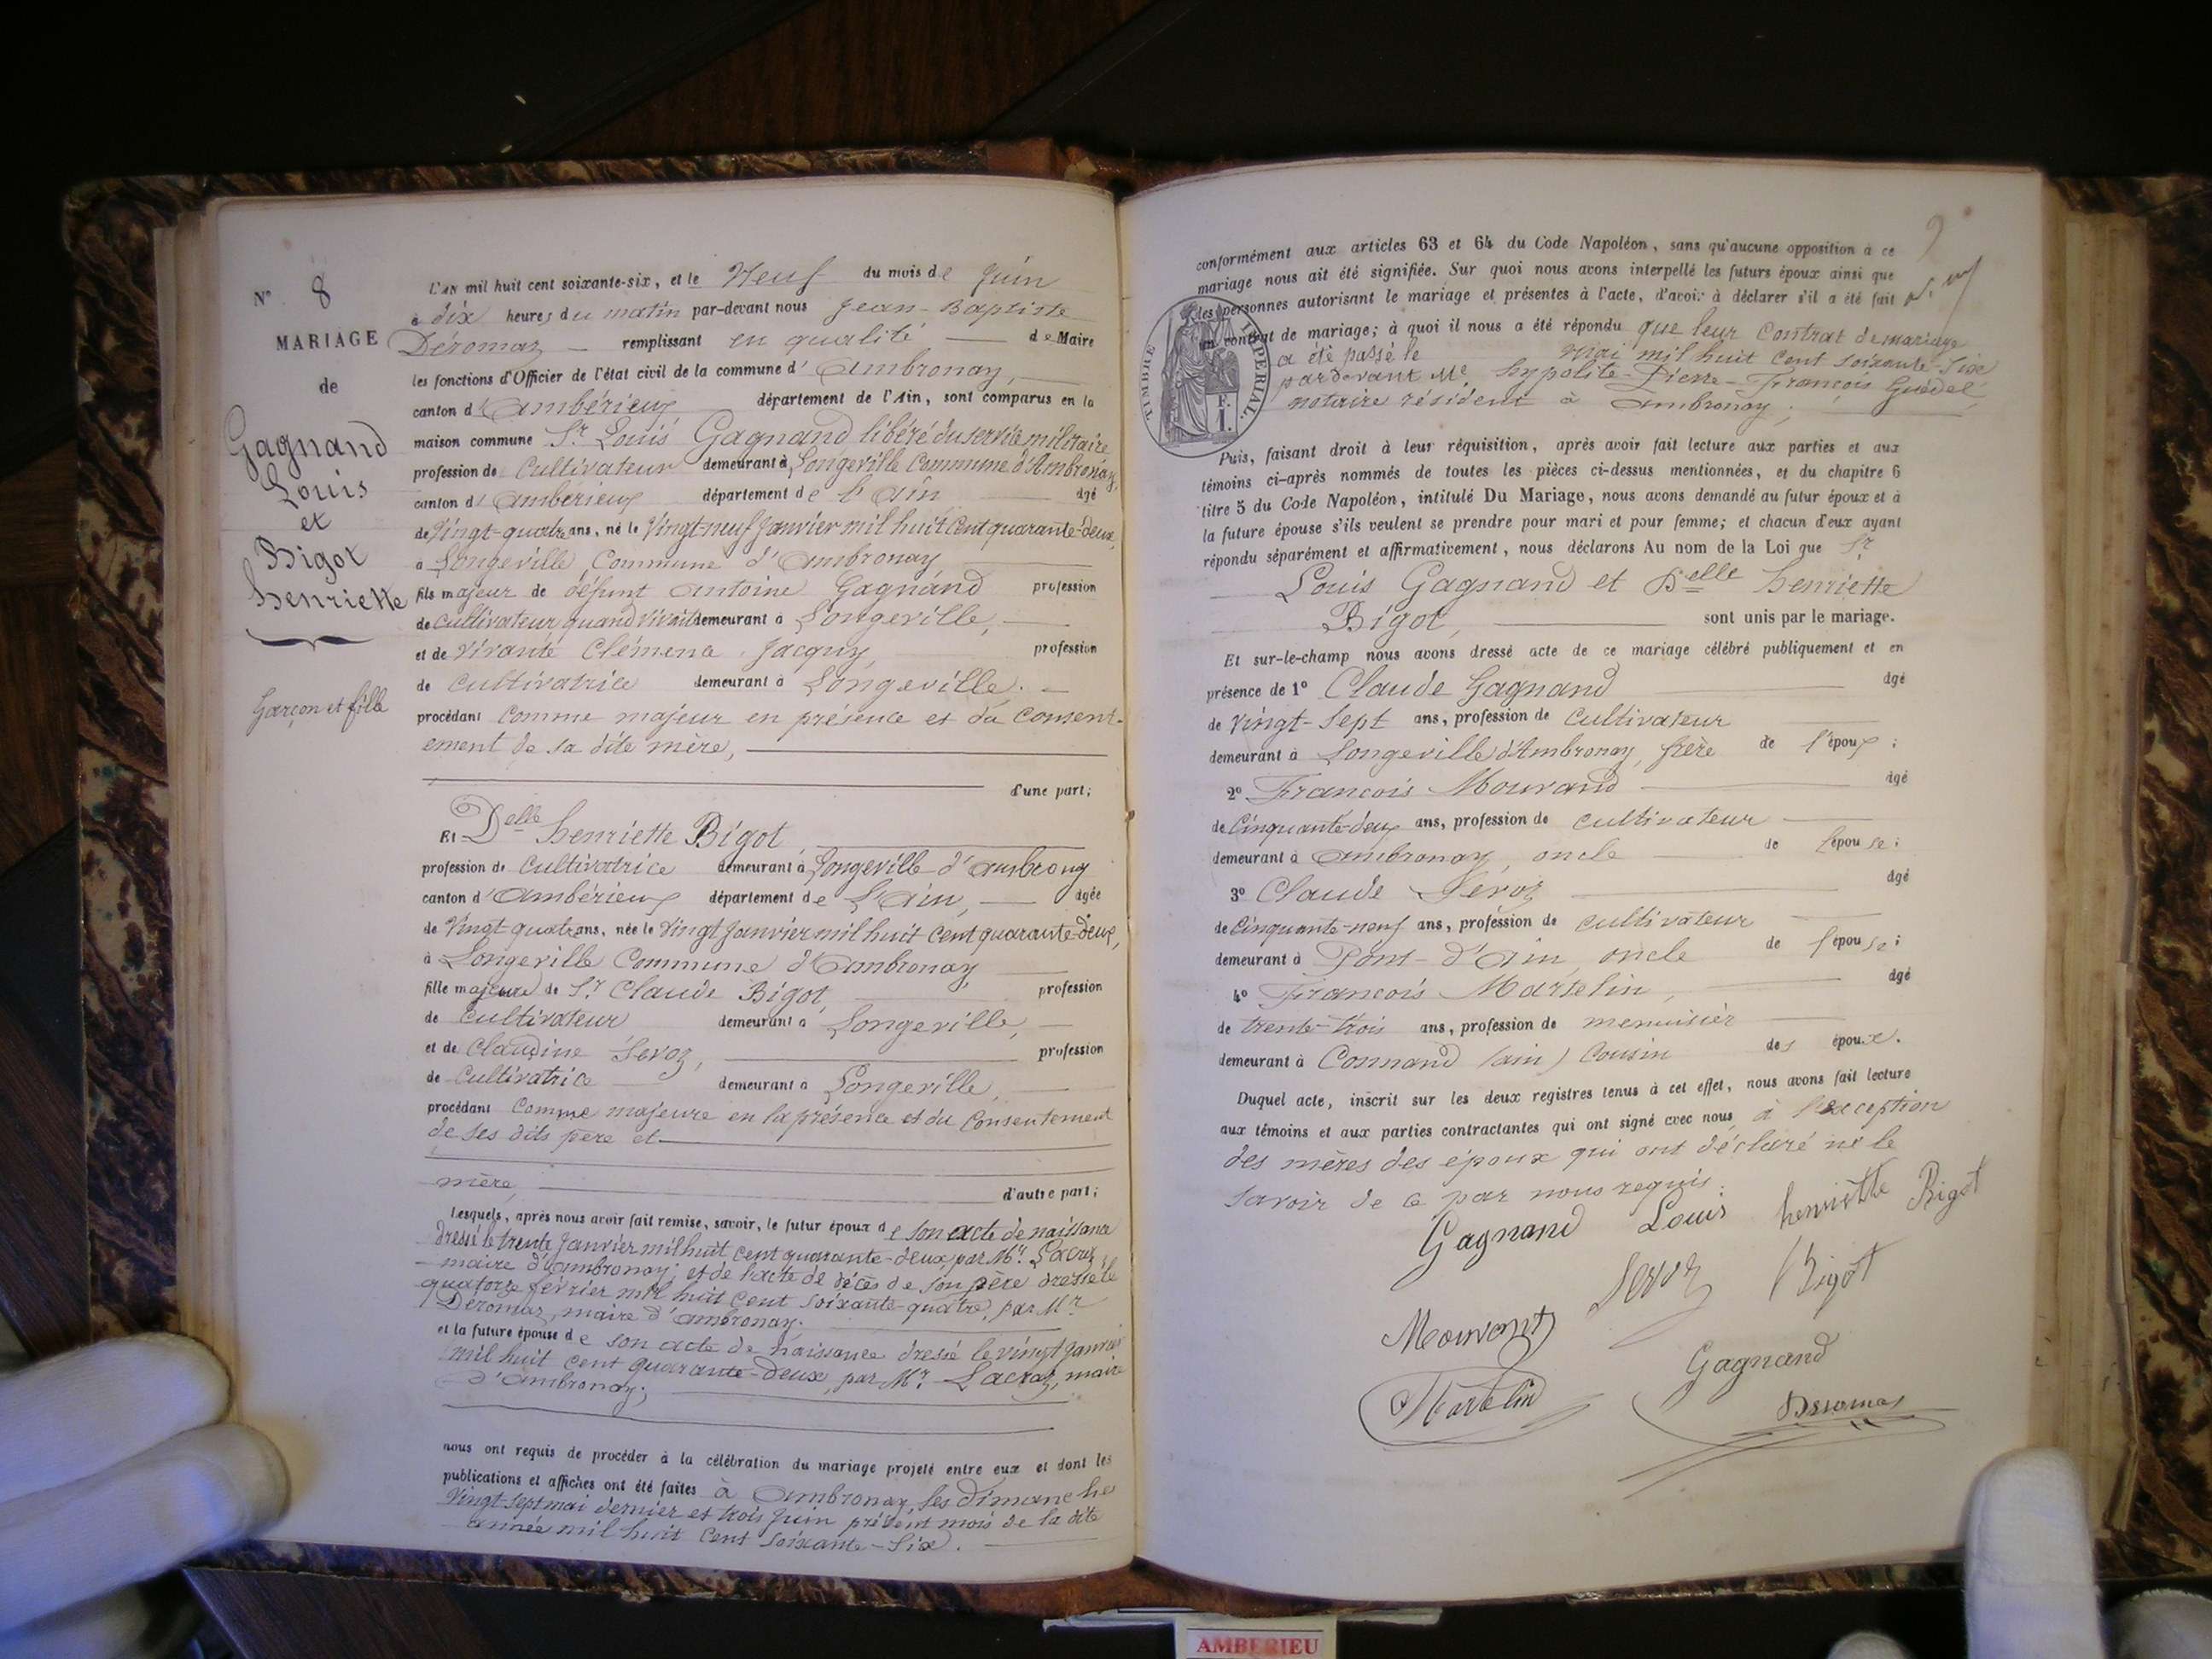 N° 8
MARIAGE
de
Gagnand
Louis
et
Bigot
henriette
Garçon et fille
L'AN mil huit cent soixante-six, et le Neuf du mois de Juin
à dix heures du matin par-devant nous Jean-Baptiste
Déromas remplissant en qualité de Maire
les fonctions d'Officier de l'état civil de la commune d'Ambronay,
canton d'Ambérieux département de l'Ain, sont comparus en la
maison commune Sr Louis Gagnand libéré du service militaire
profession de Cultivateur demeurant à Longeville Commune d'Ambronay,
canton d'Ambérieux département de l'Ain âgé
de Vingt-quatre ans, né le Vingt-neuf Janvier mil huit Cent quarante-deux,
à Longeville Commune d'Ambronay
fils majeur de défunt Antoine Gagnand profession
de Cultivateur quand vivait demeurant à Longeville,
et de Vivante Clémence Jacquy, profession
de Cultivatrice demeurant à Longeville.
procédant Comme majeur en présence et du Consent-
ement de sa dite mère,
d'une part;
Et Delle henriette Bigot,
profession de Cultivatrice demeurant à Longeville d'Ambrony
canton d'Ambérieux département de L'Ain, âgée
de Vingt quatre ans, née le Vingt Janvier mil huit Cent quarante-deux,
à Longeville Commune d'Ambronay,
fille majeure de Sr Claude Bigot, profession
de Cultivateur demeurant à Longeville,
et de Claudine Servoz, profession
de Cultivatrice demeurant à Longeville,
procédant Comme majeure en la présence et du Consentement
de ses dits père et
mère, d'autre part;
Lesquels, après nous avoir fait remise, savoir, le futur époux de son acte de naissance
dressé le trente Janvier mil huit cent quarante-deux, par Mr Lacroz,
maire d'Ambronay; et de l'acte de décès de son père dressé le
quatorze février mil huit cent soixante-quatre, par Mr
Déromas, maire d'Ambronay.
et la future épouse de son acte de naissance dressé le vingt Janvier
mil huit cent quarante-deux, par Mr Lacroz, maire
d'Ambronay;
nous ont requis de procéder à la célébration du mariage projeté entre eux et dont les
publications et affiches ont été faites à Ambronay, les Dimanche
Vingt-sept mai dernier et trois Juin présent mois de la dite
année mil huit Cent Soixante-Six.
9
conformément aux articles 63 et 64 du Code Napoléon, sans qu'aucune opposition à ce
mariage nous ait été signifiée. Sur quoi nous avons interpellé les futurs époux ainsi que
les personnes autorisant le mariage et présentes à l'acte, d'avoir à déclarer s'il a été fait
un contrat de mariage; à quoi il nous a été répondu que leur Contrat de mariage
a été passé le mai mil huit Cent Soixante-Six
par devant Me hypolite-Pierre-François Guédel,
notaire résident à Ambronay;
TIMBRE IMPERIAL.
F.
1.
Puis, faisant droit à leur réquisition, après avoir fait lecture aux parties et aux
témoins ci-après nommés de toutes les pièces ci-dessus mentionnées, et du chapitre 6
titre 5 du Code Napoléon, intitulé Du Mariage, nous avons demandé au futur époux et à
la future épouse s'ils veulent se prendre pour mari et pour femme; et chacun d'eux ayant
répondu séparément et affirmativement, nous déclarons Au nom de la Loi que Sr
Louis Gagnand et Delle henriette
Bigot, sont unis par le mariage.
Et sur-le-champ nous avons dressé acte de ce mariage célébré publiquement et en
présence de 1° Claude Gagnand âgé
de Vingt-Sept ans, profession de Cultivateur
demeurant à Longeville d'Ambronay, frère de l'époux;
2° François Mourand âgé
de Cinquante-deux ans, profession de Cultivateur
demeurant à Ambronay, oncle de l'épouse;
3° Claude Servoz âgé
de Cinquante-neuf ans, profession de Cultivateur
demeurant à Pont-d'Ain, oncle de l'épouse;
4° François Martelin, âgé
de trente-trois ans, profession de menuisier
demeurant à Connand (ain) Cousin des époux.
Duquel acte, inscrit sur les deux registres tenus à cet effet, nous avons fait lecture
aux témoins et aux parties contractantes qui ont signé avec nous, à l'exception
des mères des époux qui ont déclaré ne le
savoir de ce par nous requis.
Gagnand Louis henriette Bigot
Servoz Bigot
Mourant
Gagnand
Martelin
Déromas
AMBERIEU